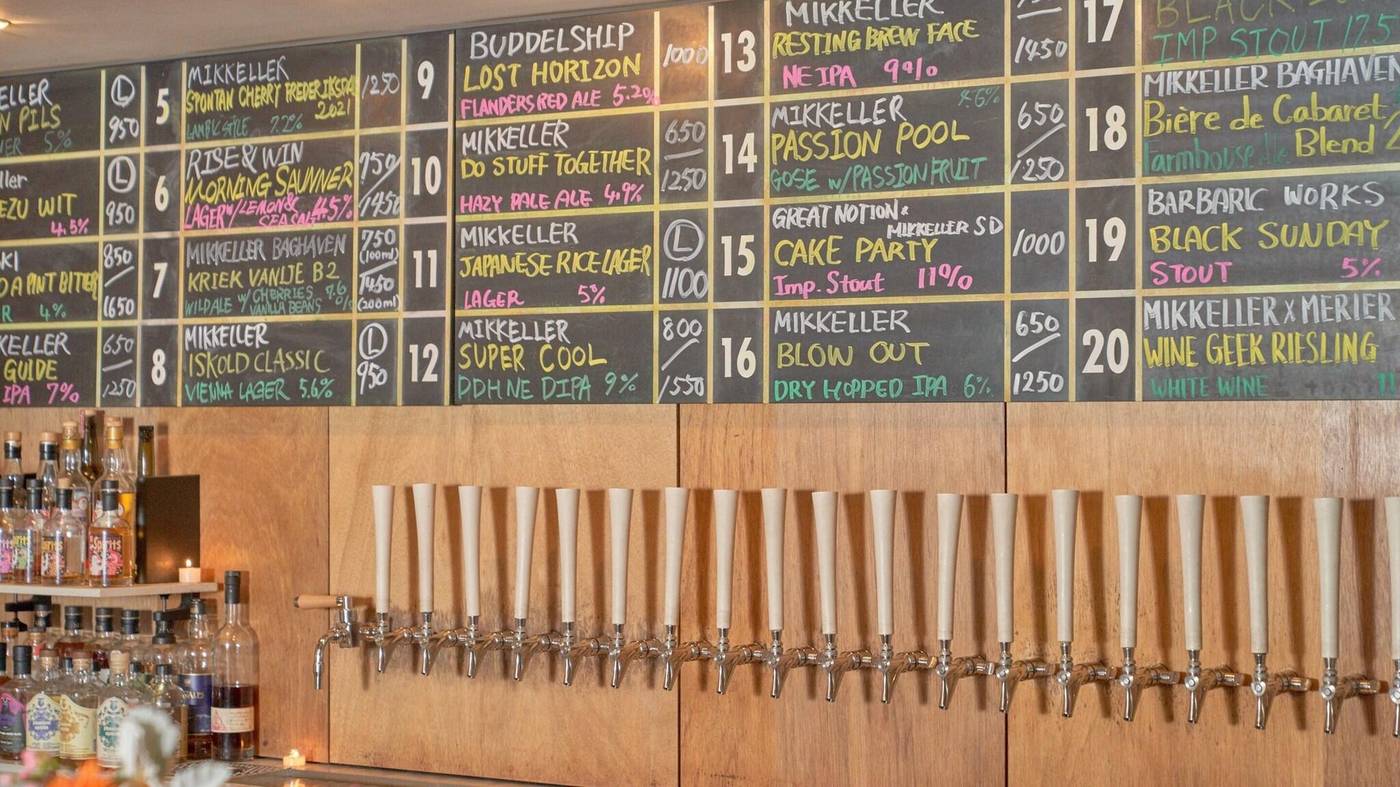 ELLER
N PILS
NER 5%
L
950
ller
EZU WIT
4.5%
L
950
KI
D A PINT BITTER
R 4%
850
1650
KELLER
GUIDE
IPA 7%
650
1250
5
MIKKELLER
SPONTAN CHERRY FREDERIKSDAL
2021
LAMBIC STYLE 7.2%
1250
6
RISE & WIN
MORNING
LAGER w/ LEMON &
4.5%
750
1450
7
MIKKELLER BAGHAVEN
KRIEK VANLJE B2
WILD ALE w/ CHERRIES 7.6
VANILLA BEANS %
750
(100ml)
1450
(200ml)
8
MIKKELLER
ISKOLD CLASSIC
VIENNA LAGER 5.6%
L
950
9
BUDDELSHIP
LOST HORIZON
FLANDERS RED ALE 5.2%
1000
10
MIKKELLER
DO STUFF TOGETHER
HAZY PALE ALE 4.9%
650
1250
11
MIKKELLER
JAPANESE RICE LAGER
LAGER 5%
L
1100
12
MIKKELLER
SUPER COOL
DDH NE DIPA 9%
800
1550
13
MIKKELLER
RESTING BREW FACE
NE IPA 9%
1450
14
MIKKELLER
PASSION POOL
GOSE w/ PASSION FRUIT
650
1250
15
GREAT NOTION &
MIKKELLER SD
CAKE PARTY
Imp. Stout 11%
1000
16
MIKKELLER
BLOW OUT
DRY HOPPED IPA 6%
650
1250
17
BLACK
IMP STOUT 17.5
18
MIKKELLER BAGHAVEN
Bière de Cabaret
Farmhouse Ale Blend 2
19
BARBARIC WORKS
BLACK SUNDAY
STOUT 5%
20
MIKKELLER x MERTER
WINE GEEK RIESLING
WHITE WINE